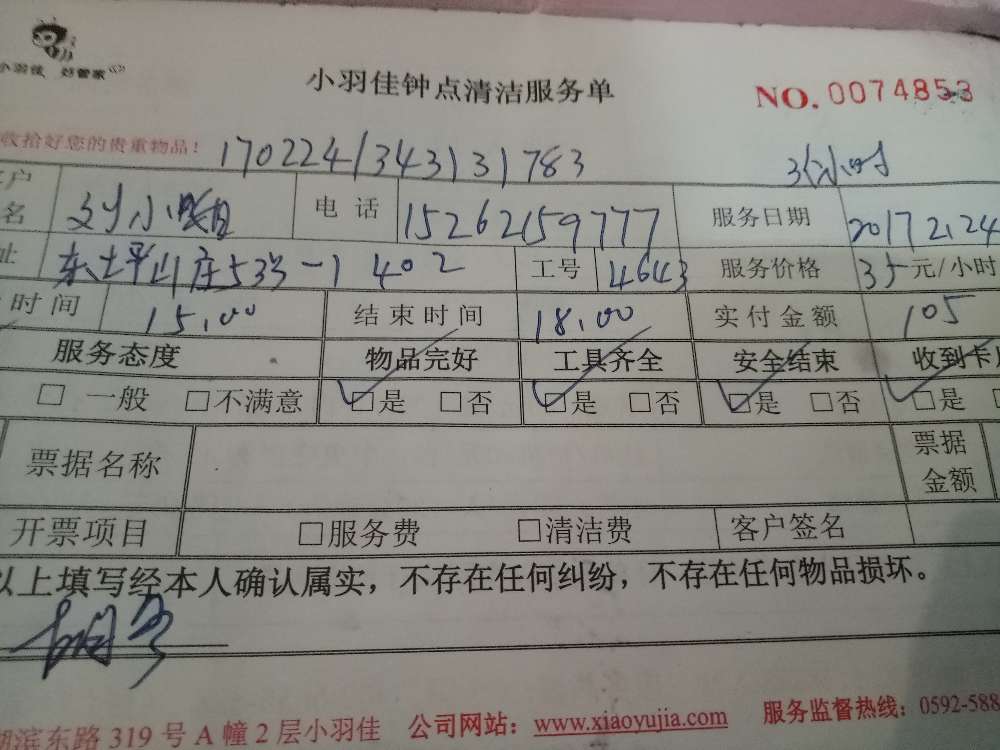 小羽佳 好管家
小羽佳钟点清洁服务单
NO. 0074853
收拾好您的贵重物品！ 170224134313 1783 3小时
客户名 电话 15262159777 服务日期 2017 2.24
址 东土平山庄533-1 402 工号 4643 服务价格 35元/小时
时间 15.00 结束时间 18.00 实付金额 105
服务态度 物品完好 工具齐全 安全结束 收到卡
□一般 □不满意 □是 □否 □是 □否 □是 □否 □是
票据名称 票据金额
开票项目 □服务费 □清洁费 客户签名
以上填写经本人确认属实，不存在任何纠纷，不存在任何物品损坏。
湖滨东路319号A幢2层小羽佳 公司网站：www.xiaoyujia.com 服务监督热线：0592-588